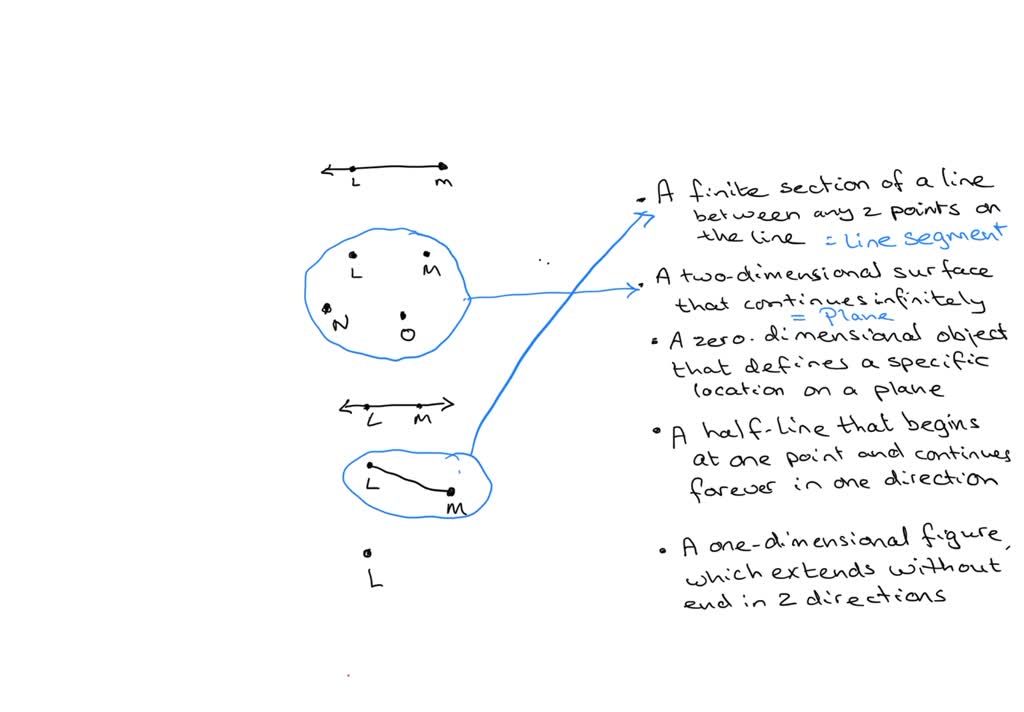 L M
L M
N O
L M
L
M
L
• A finite section of a line
between any 2 points on
the line = Line segment
• A two-dimensional surface
that continues infinitely
= Plane
• A zero-dimensional object
that defines a specific
location on a plane
• A half-line that begins
at one point and continues
forever in one direction
• A one-dimensional figure,
which extends without
end in 2 directions